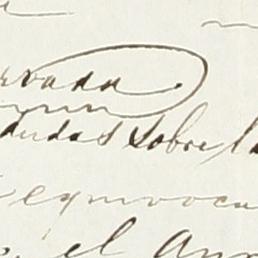 rvada.
dudas sobre la
equivoca
el